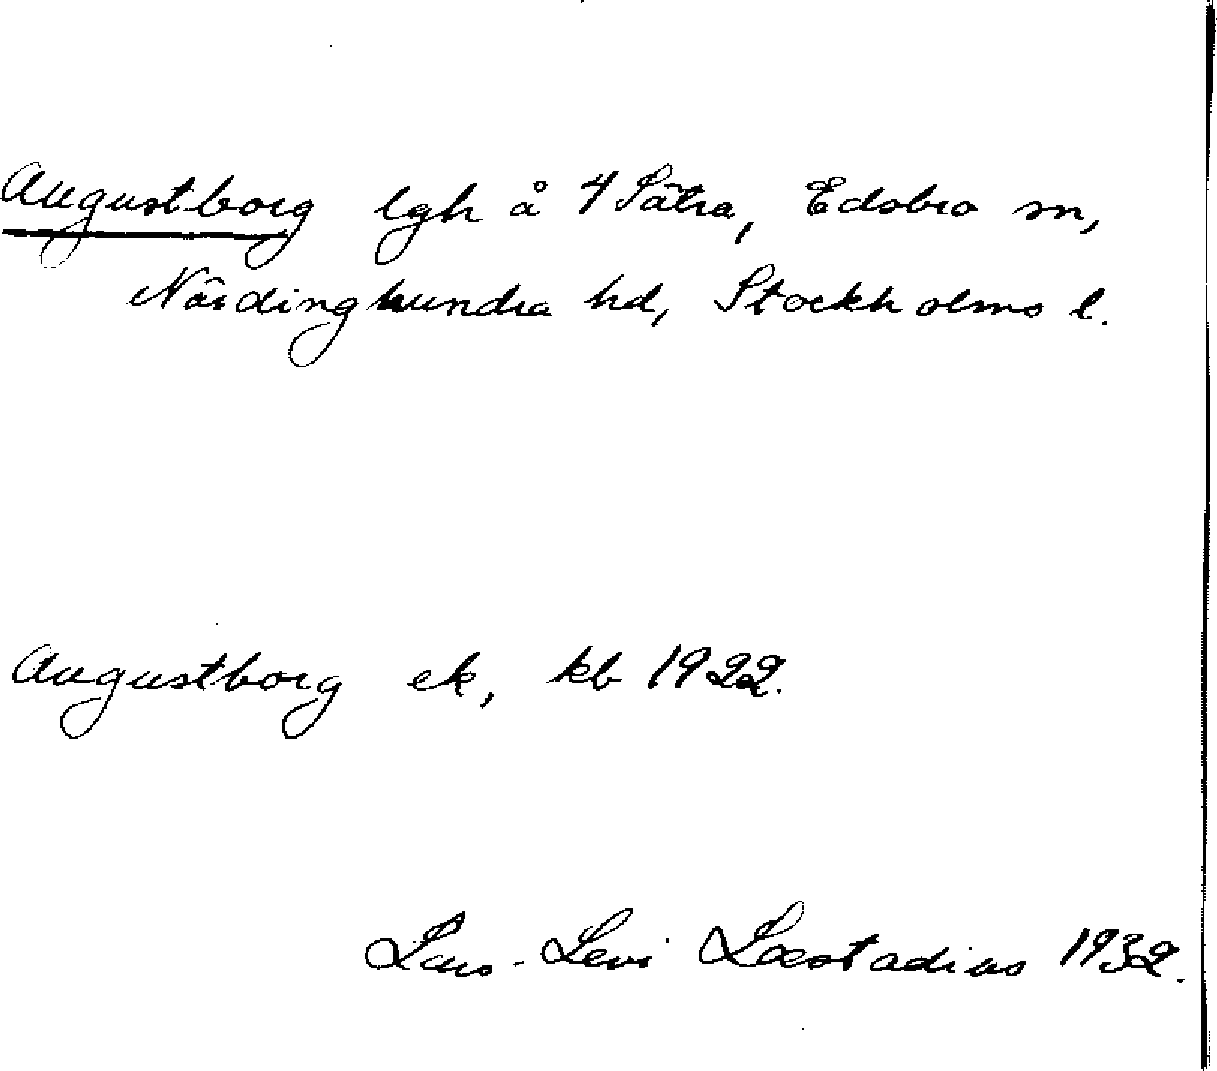 Augustborg lgh å 4 Sätra, Edsbro sn,
Närdinghundra hd, Stockholms l.
Augustborg ek, kb 1922.
Lars-Levi Læstadius 1932.